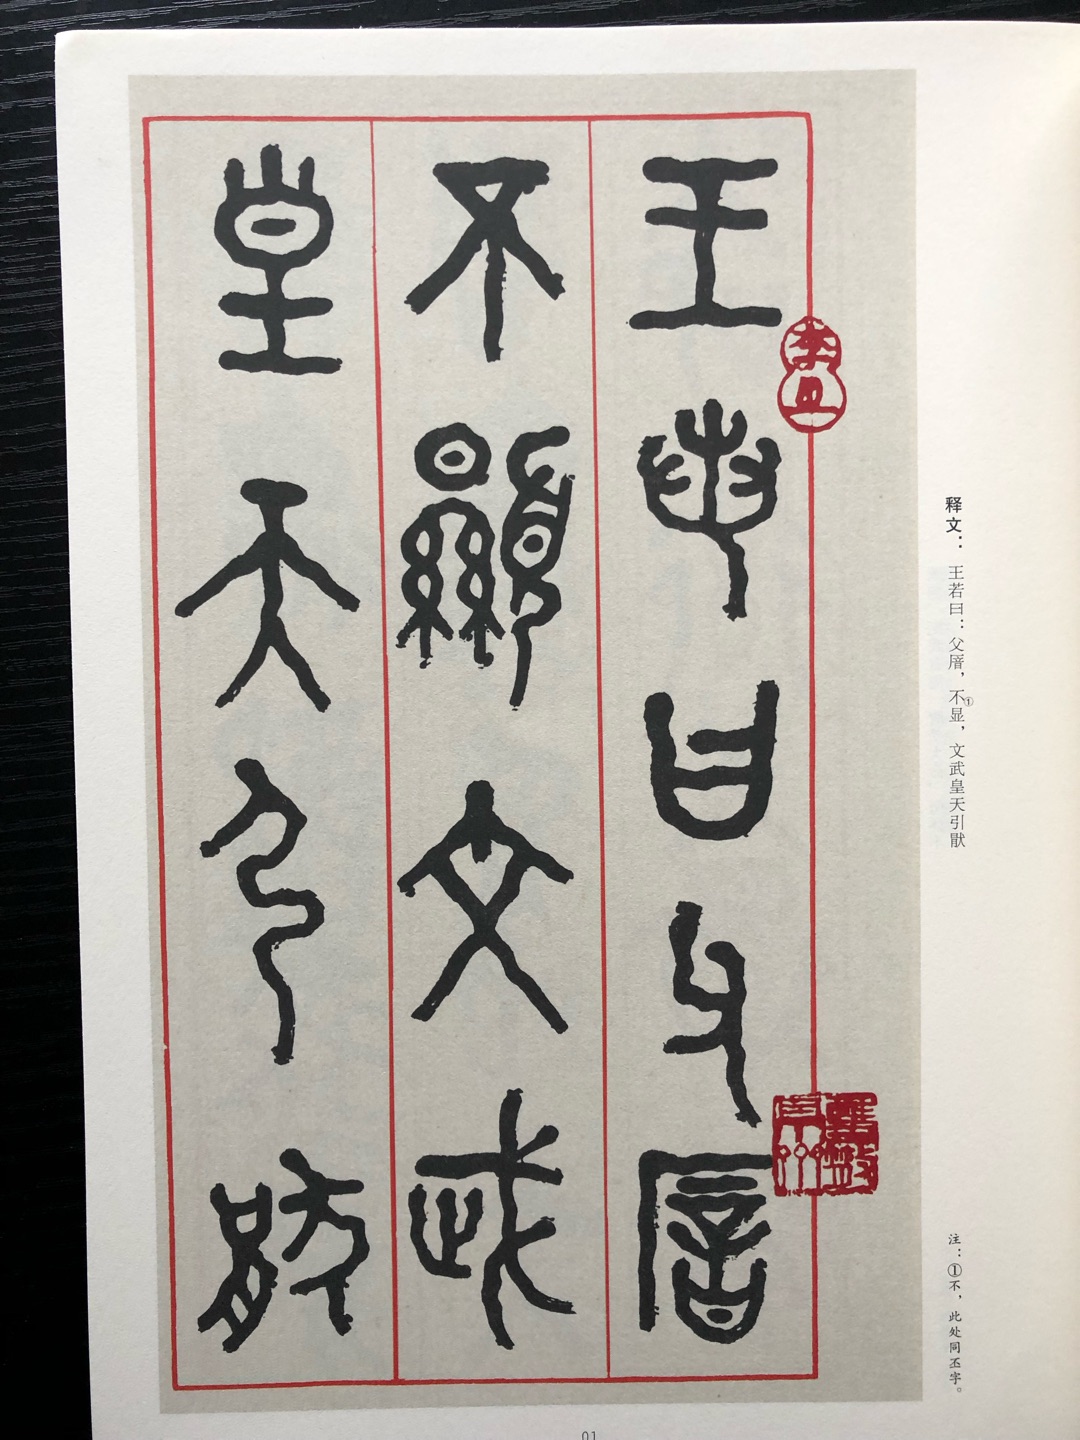 王若曰父厝
不显文武
皇天引猒
释文：王若曰：父厝，不①显，文武皇天引猒
注：①不，此处同丕字。
01